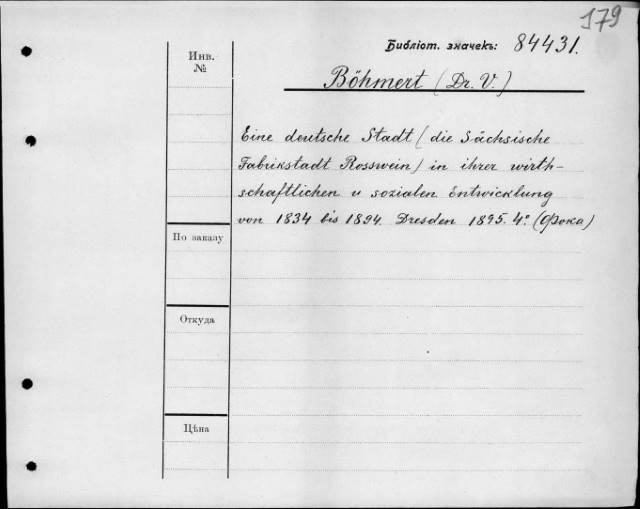 179
Библіот. значекъ: 84431.
Инв.
№
Böhmert (Dr. V.)
Eine deutsche Stadt (die Sächsische
Fabrikstadt Rosswein) in ihrer wirth-
schaftlichen u sozialen Entwicklung
von 1834 bis 1894. Dresden 1895. 4º. (Фока)
По заказу
Откуда
Цѣна